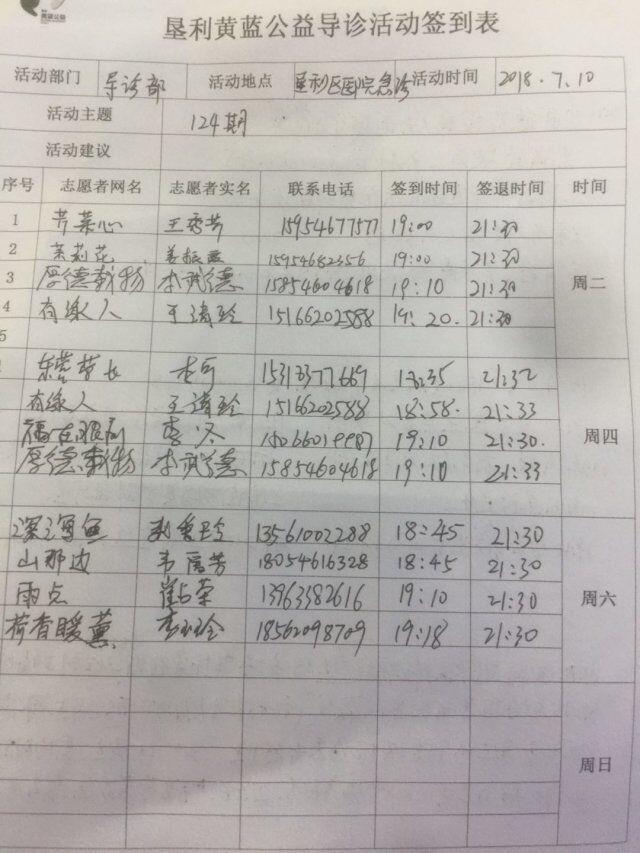 垦利黄蓝公益导诊活动签到表
活动部门 导诊部 活动地点 垦利区医院急诊 活动时间 2018.7.10
活动主题 124期
活动建议
序号 志愿者网名 志愿者实名 联系电话 签到时间 签退时间 时间
1 芹菜心 王秀芳 15954677577 19:00 21:30
2 茉莉花 姜振 15954682356 19:00 21:30
3 厚德载物 李武德 15854604618 19:10 21:30
4 有缘人 于清玲 15166202588 19:20. 21:30
5
周二
李可 15313377669 21:32
有缘人 王清玲 15166202588 18:58. 21:33
福在眼前 李 19:10 21:30.
厚德载物 李武德 15854604618 19:10 21:33
周四
深海鱼 13561002288 18:45 21:30
山那边 韦富芳 18054616328 18:45 21:30
雨点 崔占荣 13963382616 19:10 21:30
荷香暖薰 18562098709 19:18 21:30
周六
周日